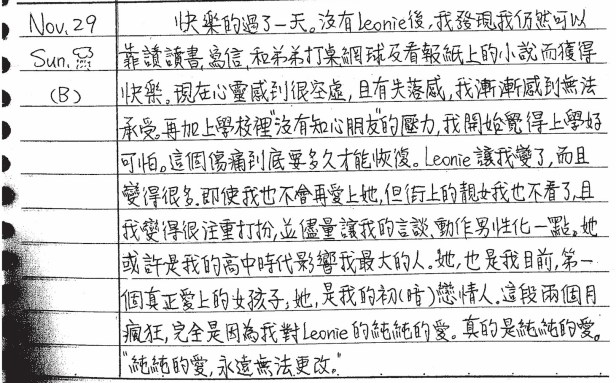 Nov. 29 快樂的過了一天。沒有Leonie後,我發現我仍然可以
Sun. 靠讀讀書、寫信,和弟弟打桌網球及看報紙上的小說而獲得
(B) 快樂。現在心靈感到很空虛,且有失落感,我漸漸感到無法
承受。再加上學校裡"沒有知心朋友"的壓力,我開始覺得上學好
可怕。這個傷痛到底要多久才能恢復。Leonie讓我變了,而且
變得很多。即使我也不會再愛上她,但街上的靚女我也不看了,且
我變得很注重打扮,並儘量讓我的言談、動作男性化一點。她
或許是我的高中時代影響我最大的人。她,也是我目前,第一
個真正愛上的女孩子,她,是我的初(暗)戀情人。這段兩個月
瘋狂,完全是因為我對Leonie的純純的愛。真的是純純的愛。
"純純的愛,永遠無法更改。"